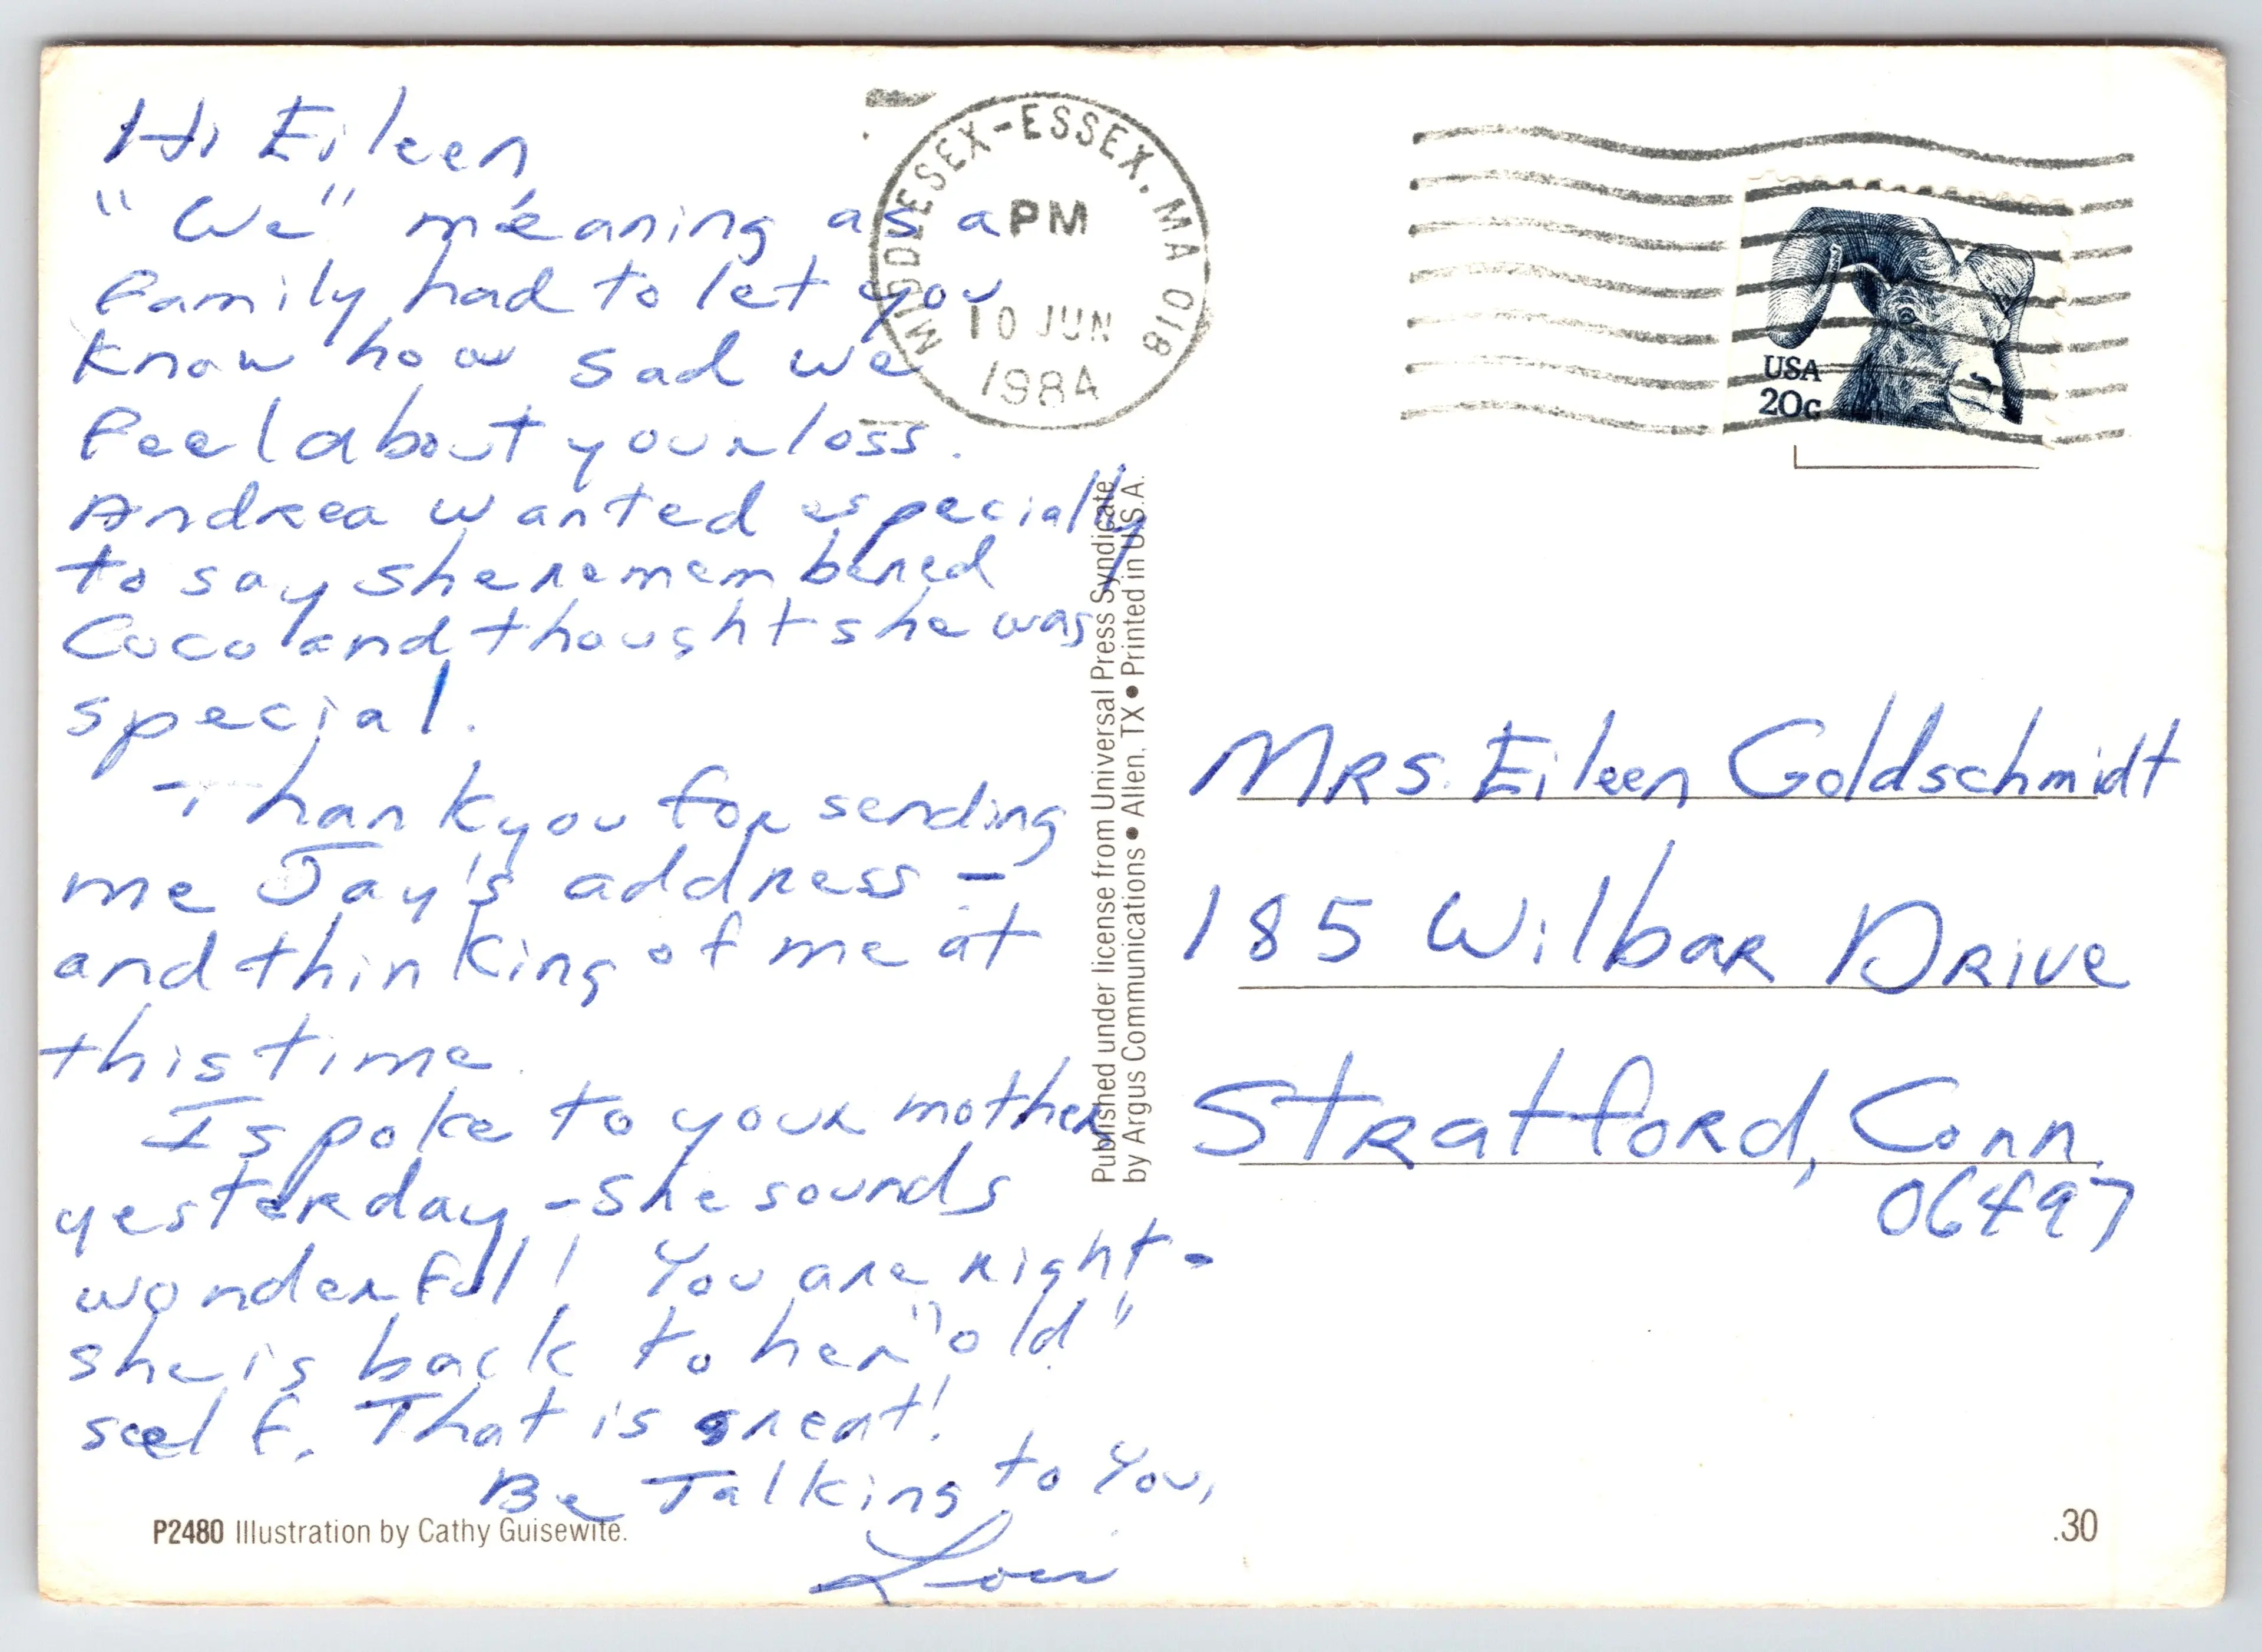 Hi Eileen
"We" meaning as a
family had to let you
know how sad we
feel about your loss.
Andrea wanted especially
to say she remembered
Coco and thought she was
special.
Thank you for sending
me Jay's address -
and thinking of me at
this time.
I spoke to your mother
yesterday - she sounds
wonderful! You are right -
she is back to her "old"
self. That is great!
Be Talking to You,
Lois
P2480 Illustration by Cathy Guisewite.
MIDDLESEX-ESSEX, MA 018
PM
10 JUN
1984
USA
20c
Published under license from Universal Press Syndicate
by Argus Communications • Allen, TX • Printed in U.S.A.
Mrs. Eileen Goldschmidt
185 Wilbar Drive
Stratford, Conn.
06497
.30